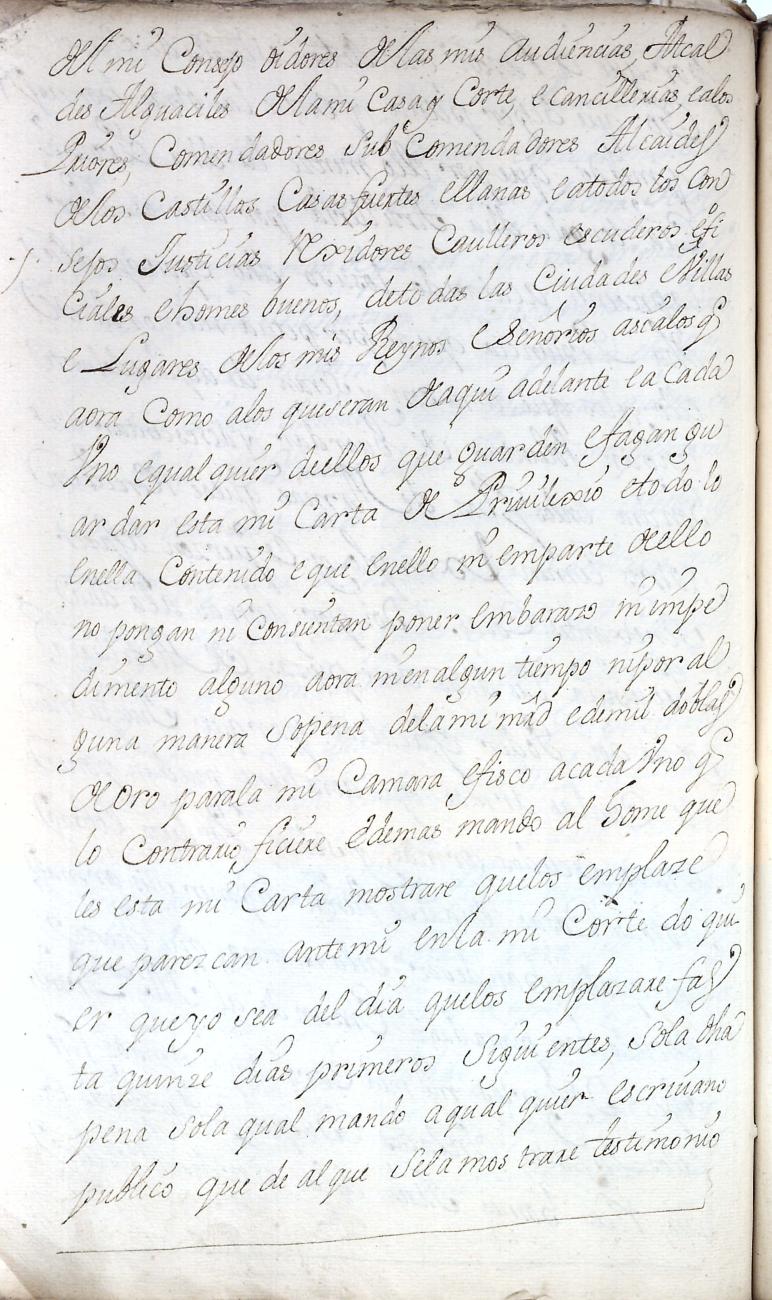 del mi Consejo oidores delas mis audiencias, Alcal
des Alguaciles dela mi casa y Corte, e cancillerias, ealos
Priores, Comendadores Subcomendadores Alcaides
delos Castillos Casas fuertes ellanas eatodos los Con
sejos Justicias Rexidores Caulleros escuderos ofi
ciales ehomes buenos, detodas las Ciudades eVillas
e Lugares delos mis Reynos e Señorios asialos q
aora Como alos queseran deaqui adelante eacada
Vno equalquier deellos que guarden efagan gu
ardar esta mi Carta de Priuilexio etodo lo
enella Contenido eque enello ni emparte dello
no pongan ni Consientan poner embarazo ni impe
dimento alguno aora nienalgun tiempo nipor al
guna manera sopena delami md edemil doblas
deOro parala mi Camara efisco acada Vno q
lo Contrario ficiere edemas mando al home que
les esta mi Carta mostrare quelos emplaze
que parezcan antemi enla mi Corte do qui
er queyo sea del dia quelos emplazare fas
ta quinze dias primeros siguientes, sola dha
pena sola qual mando aqualquier escriuano
publico que de alque selamostrare testimonio